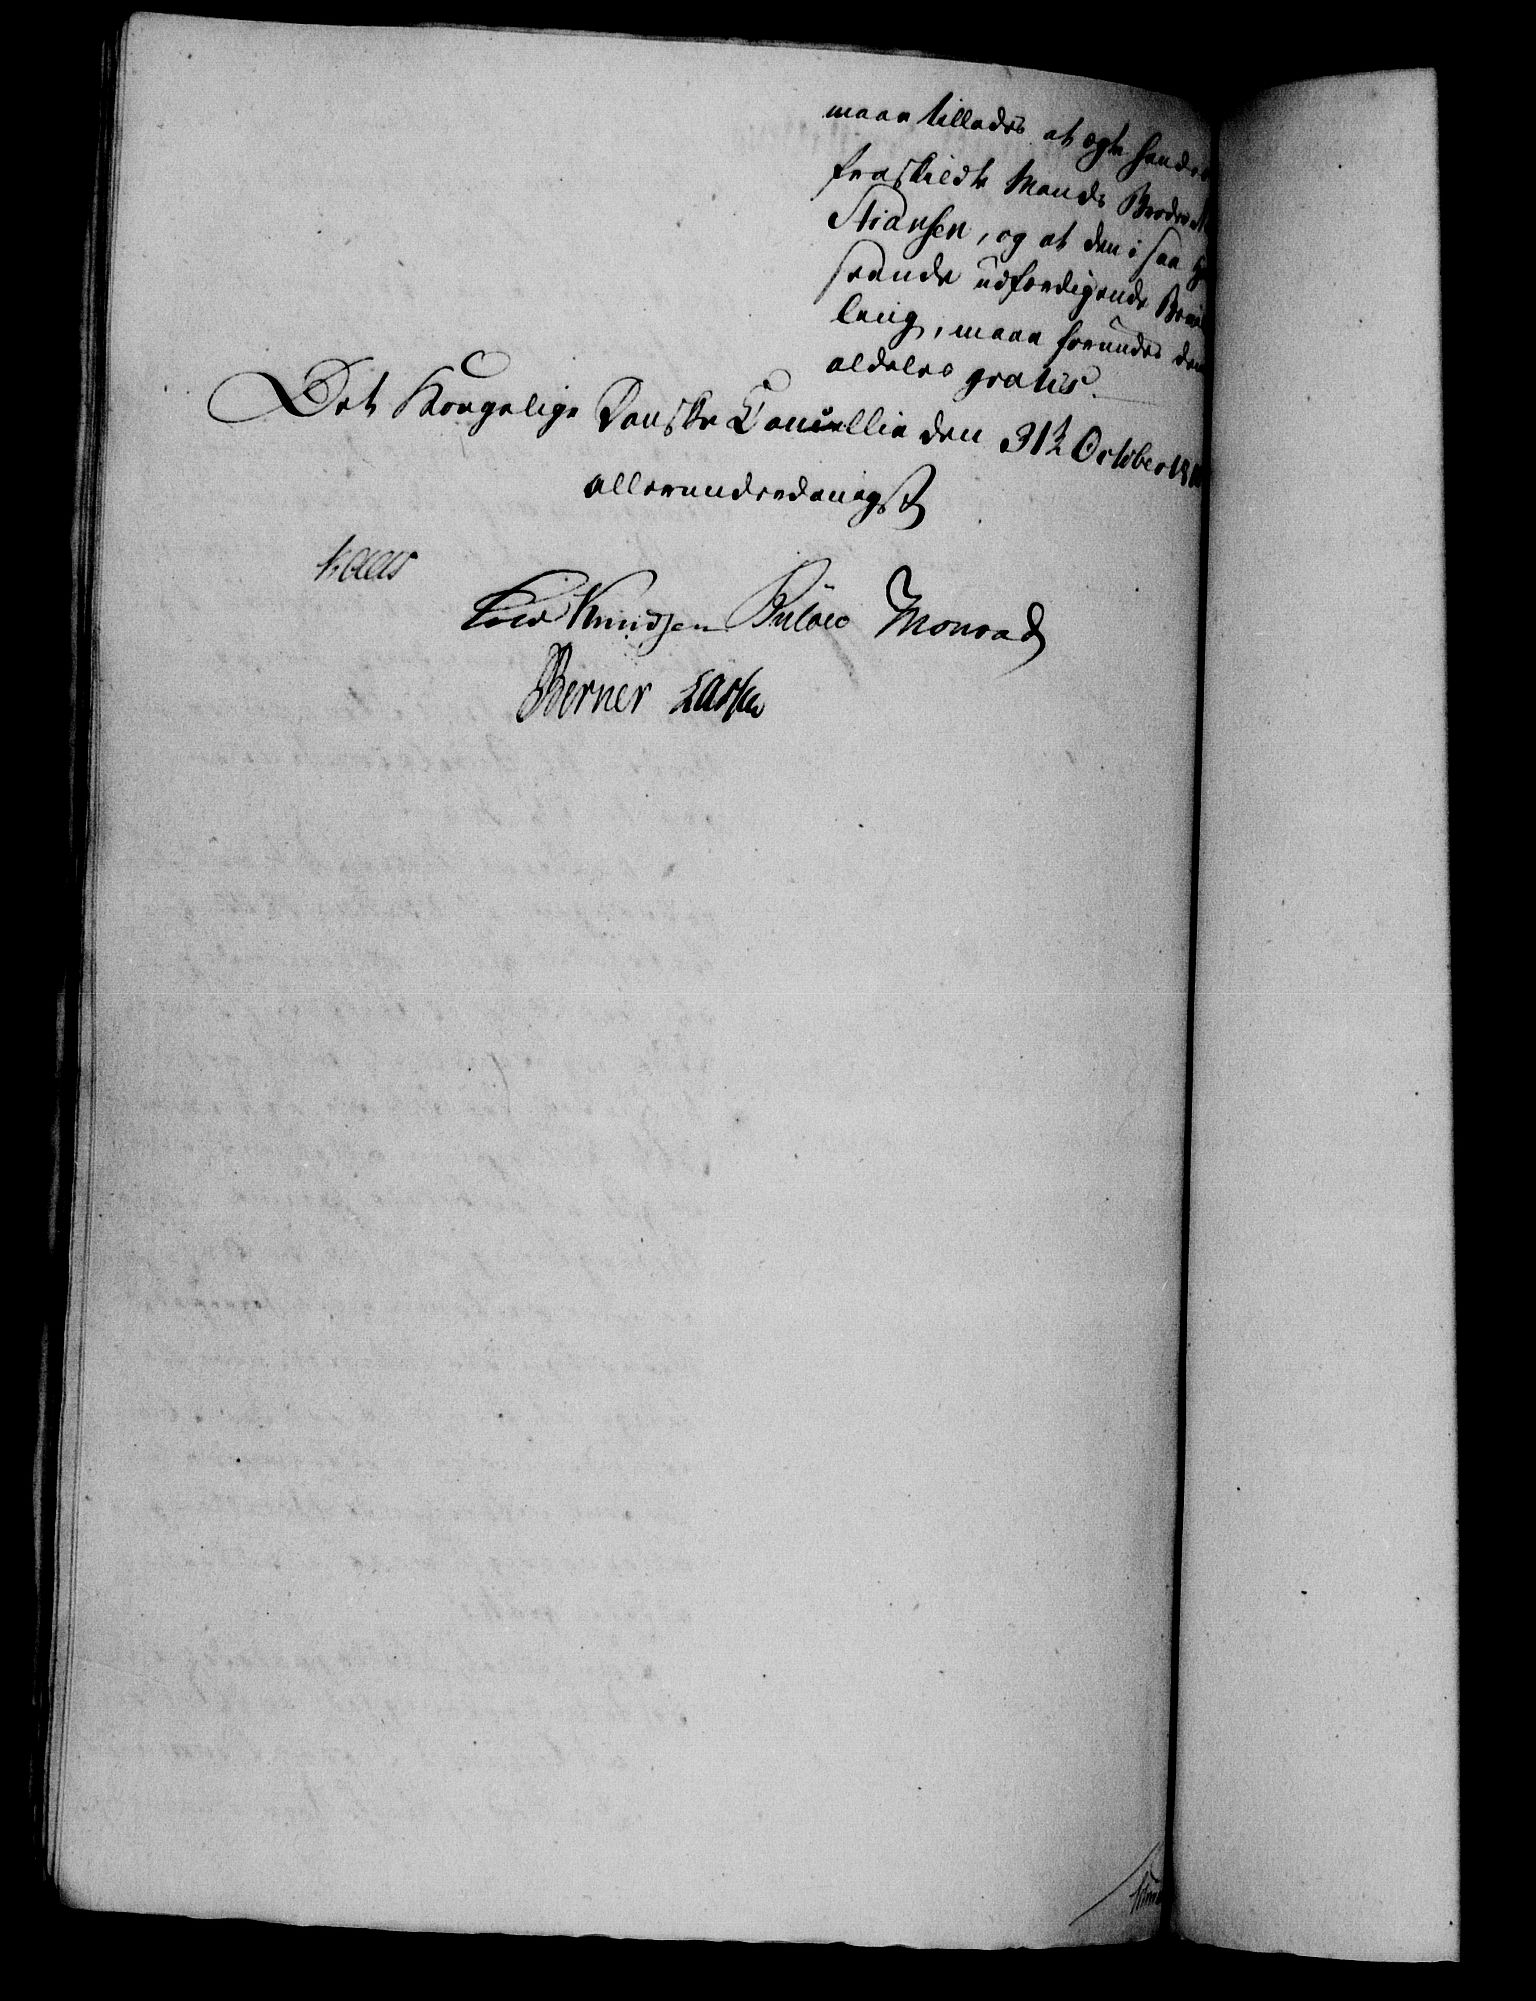 maae tillades at ægte hendes
fraskildte Mands Broder
Stiansen, og at den i saa
seende udfærdigende
ling, maae forundes dem
aldeles gratis.
Det Kongelige Danske Cancellie den 31te October 18
allerunderdanigst
Kaas
Knudsen Bülow Monrad
Berner Lassen